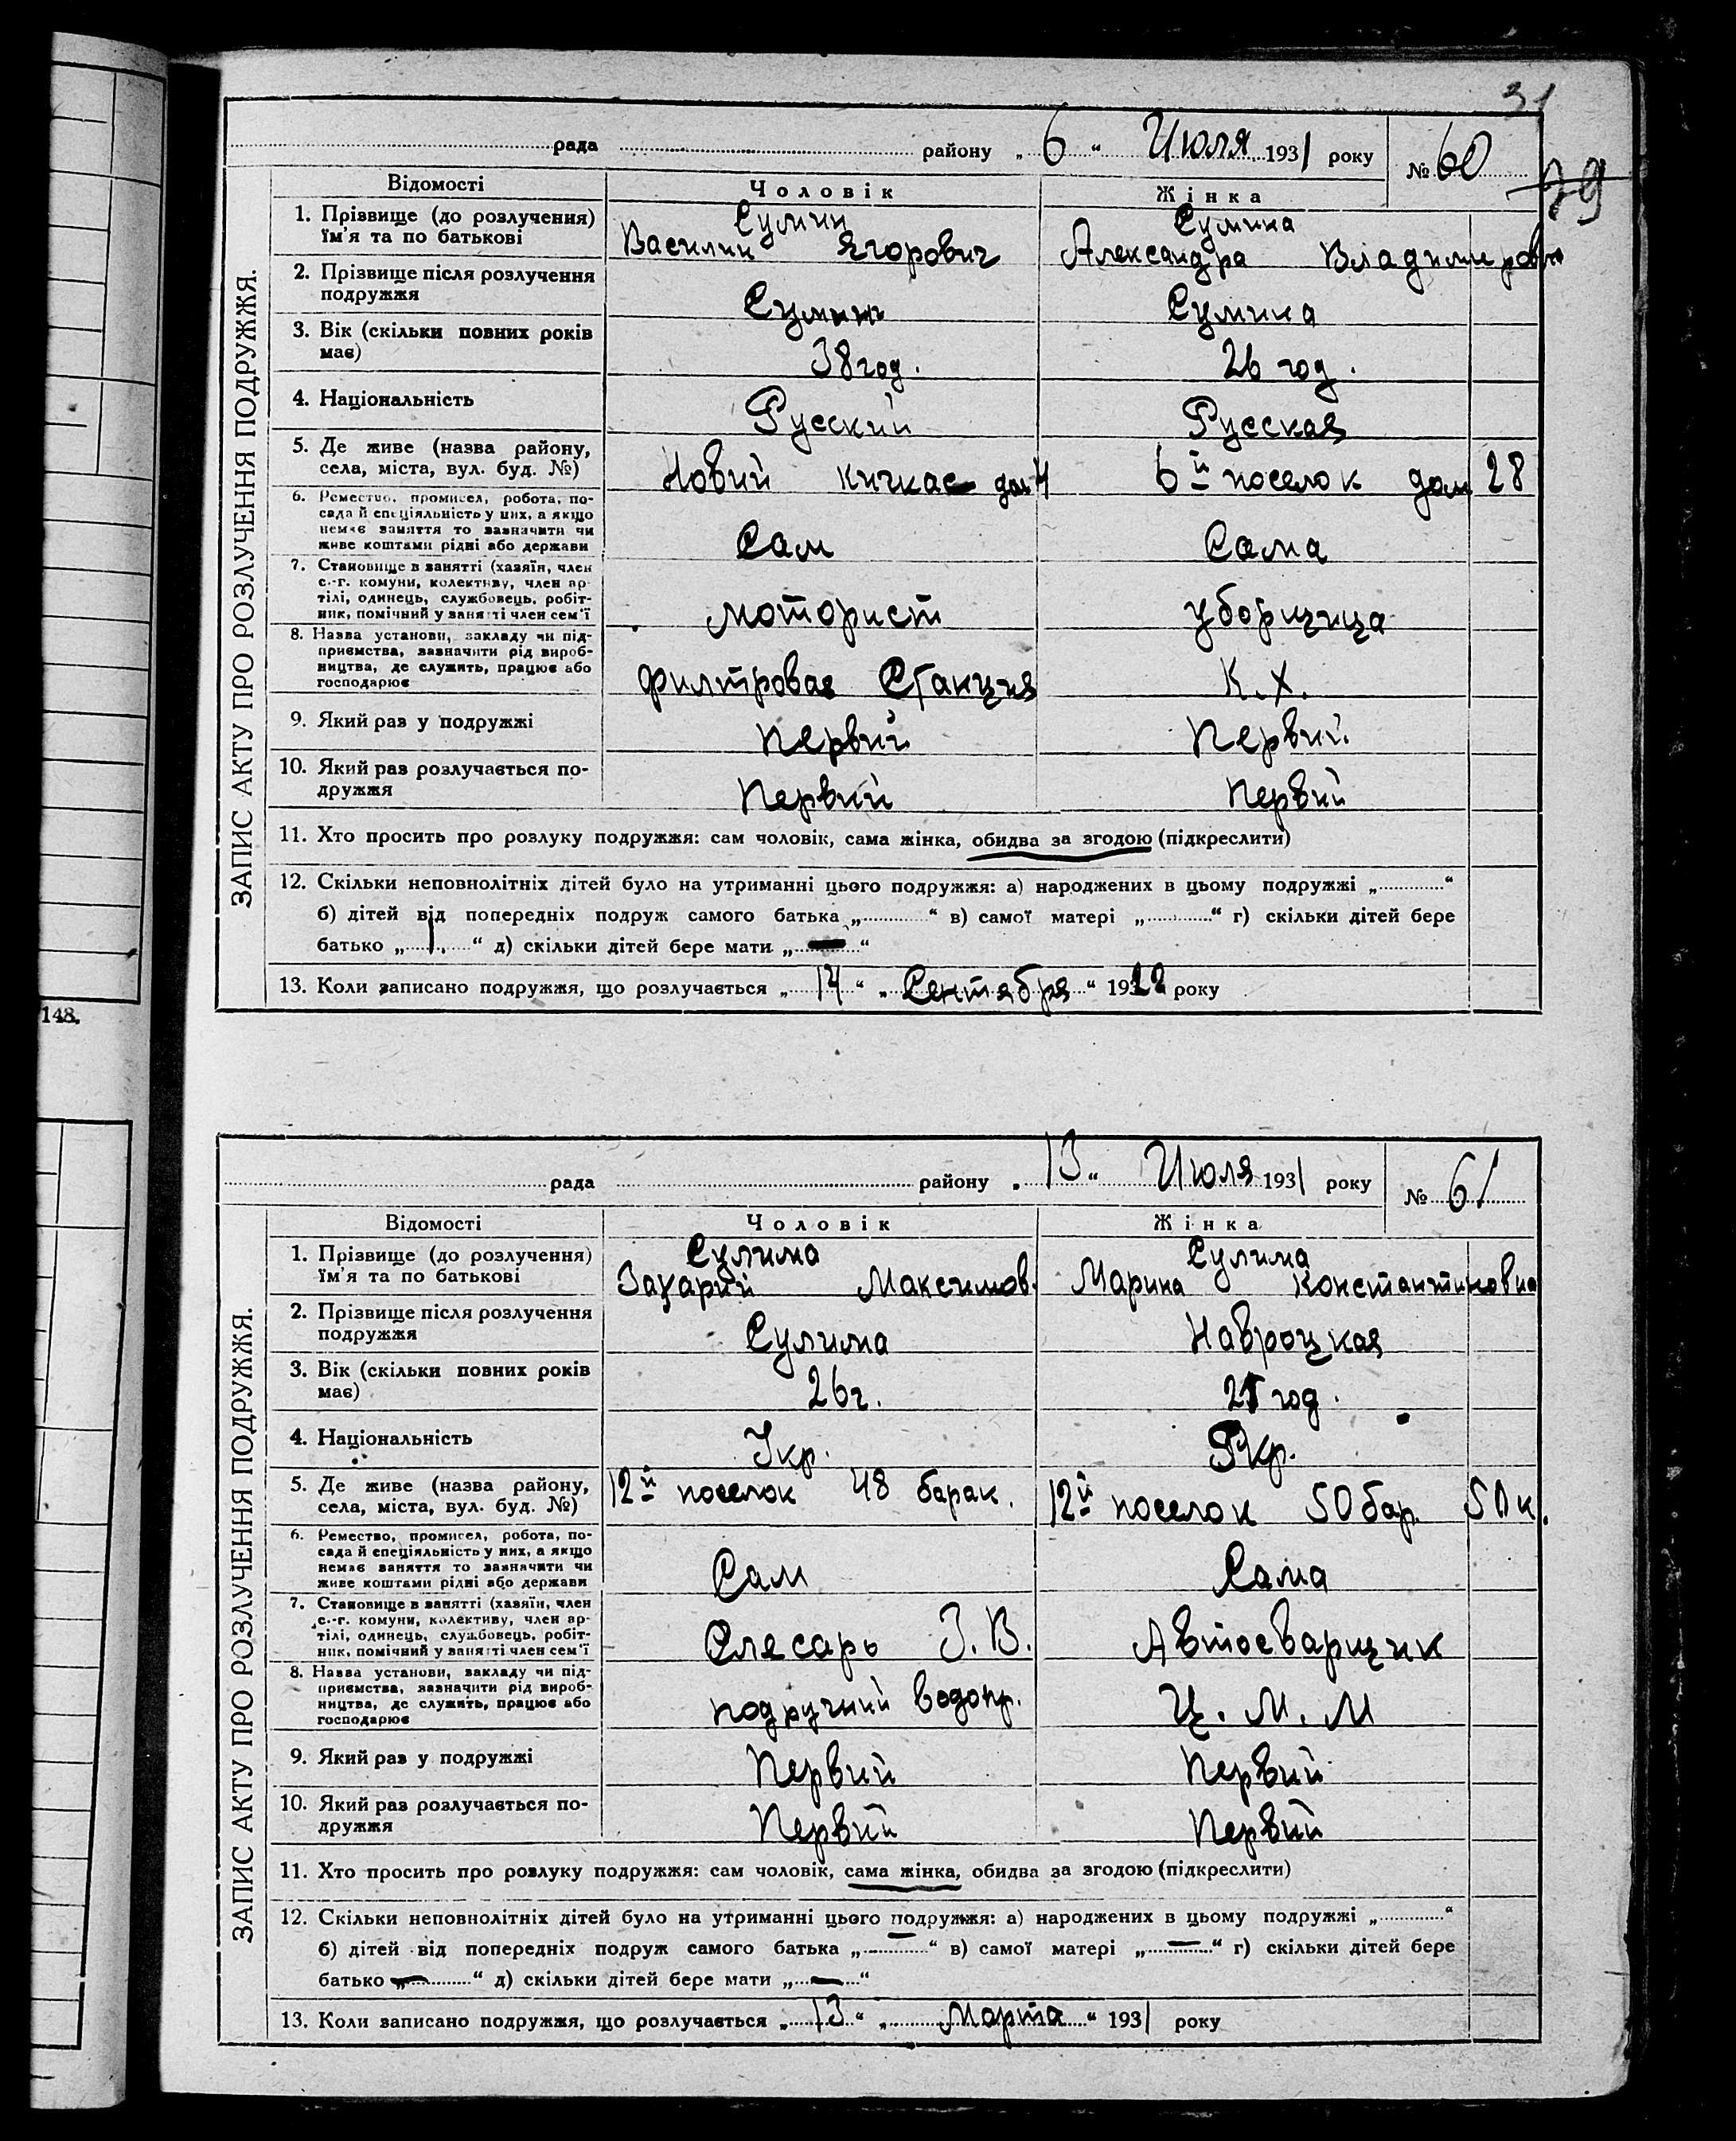 31
рада району „ 6 “ Июля 1931 року № 60
79
Відомості Чоловік Жінка
1. Прізвище (до розлучення) Сумин Сумина
ім'я та по батькові Василий Ягорович Александра Владимировн
2. Прізвище після розлучення
подружжя Сумин Сумина
3. Вік (скільки повних років
має) 38 год. 26 год.
4. Національність Русский Русская
5. Де живе (назва району,
села, міста, вул. буд. №) Новий Кичкас дом 4 6й поселок дом 28
6. Ремество, промисел, робота, по-
сада й спеціяльність у них, а якщо
немає заняття то зазначити чи
живе коштами рідні або держави Сам Сама
7. Становище в занятті (хазяїн, член
с.-г. комуни, колективу, член ар-
тілі, одинець, службовець, робіт-
ник, помічний у занятті член сем'ї моторист уборщица
8. Назва установи, закладу чи під-
приємства, зазначити рід вироб-
ництва, де служить, працює або
господарює филтровая Станция К. Х.
9. Який раз у подружжі Первий Первий
10. Який раз розлучається по-
дружжя Первий Первий
11. Хто просить про розлуку подружжя: сам чоловік, сама жінка, обидва за згодою (підкреслити)
12. Скільки неповнолітніх дітей було на утриманні цього подружжя: а) народжених в цьому подружжі „ “
б) дітей від попередніх подруж самого батька „ “ в) самої матері „ “ г) скільки дітей бере
батько „ 1. “ д) скільки дітей бере мати „ — “
13. Коли записано подружжя, що розлучається „ 14 “ „ Сентября “ 1922 року
ЗАПИС АКТУ ПРО РОЗЛУЧЕННЯ ПОДРУЖЖЯ.
148.
рада району „ 13 “ Июля 1931 року № 61
Відомості Чоловік Жінка
1. Прізвище (до розлучення) Сулима Сулима
ім'я та по батькові Захарий Максимов. Марина Константиновна
2. Прізвище після розлучення
подружжя Сулима Навроцкая
3. Вік (скільки повних років
має) 26 г. год.
4. Національність Укр. Укр.
5. Де живе (назва району,
села, міста, вул. буд. №) 12й поселок 48 барак. 12й поселок 50 бар. 50 к.
6. Ремество, промисел, робота, по-
сада й спеціяльність у них, а якщо
немає заняття то зазначити чи
живе коштами рідні або держави Сам Сама
7. Становище в занятті (хазяїн, член
с.-г. комуни, колективу, член ар-
тілі, одинець, службовець, робіт-
ник, помічний у занятті член сем'ї Слесарь З. В. Автосварщик
8. Назва установи, закладу чи під-
приємства, зазначити рід вироб-
ництва, де служить, працює або
господарює подручний водопр. Ц. М. М
9. Який раз у подружжі Первий Первий
10. Який раз розлучається по-
дружжя Первий Первий
11. Хто просить про розлуку подружжя: сам чоловік, сама жінка, обидва за згодою (підкреслити)
12. Скільки неповнолітніх дітей було на утриманні цього подружжя: а) народжених в цьому подружжі „ “
б) дітей від попередніх подруж самого батька „ — “ в) самої матері „ — “ г) скільки дітей бере
батько „ — “ д) скільки дітей бере мати „ — “
13. Коли записано подружжя, що розлучається „ 13 “ „ Марта “ 1931 року
ЗАПИС АКТУ ПРО РОЗЛУЧЕННЯ ПОДРУЖЖЯ.